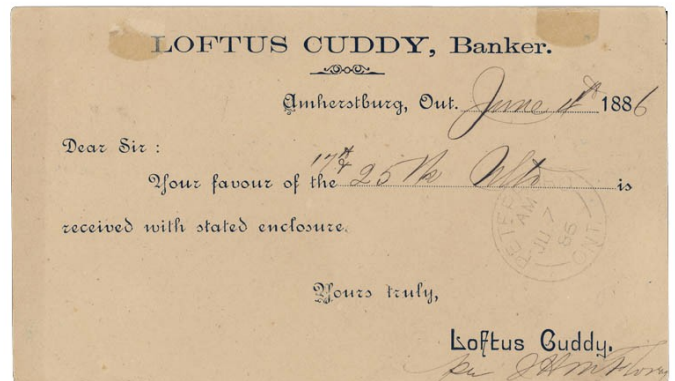 LOFTUS CUDDY, Banker.
Amherstburg, Ont. June 4th 1886
Dear Sir :
17th &
Your favour of the 25th Ulto is
received with stated enclosure.
AM
JU 7
86
ONT
Yours truly,
Loftus Cuddy.
per